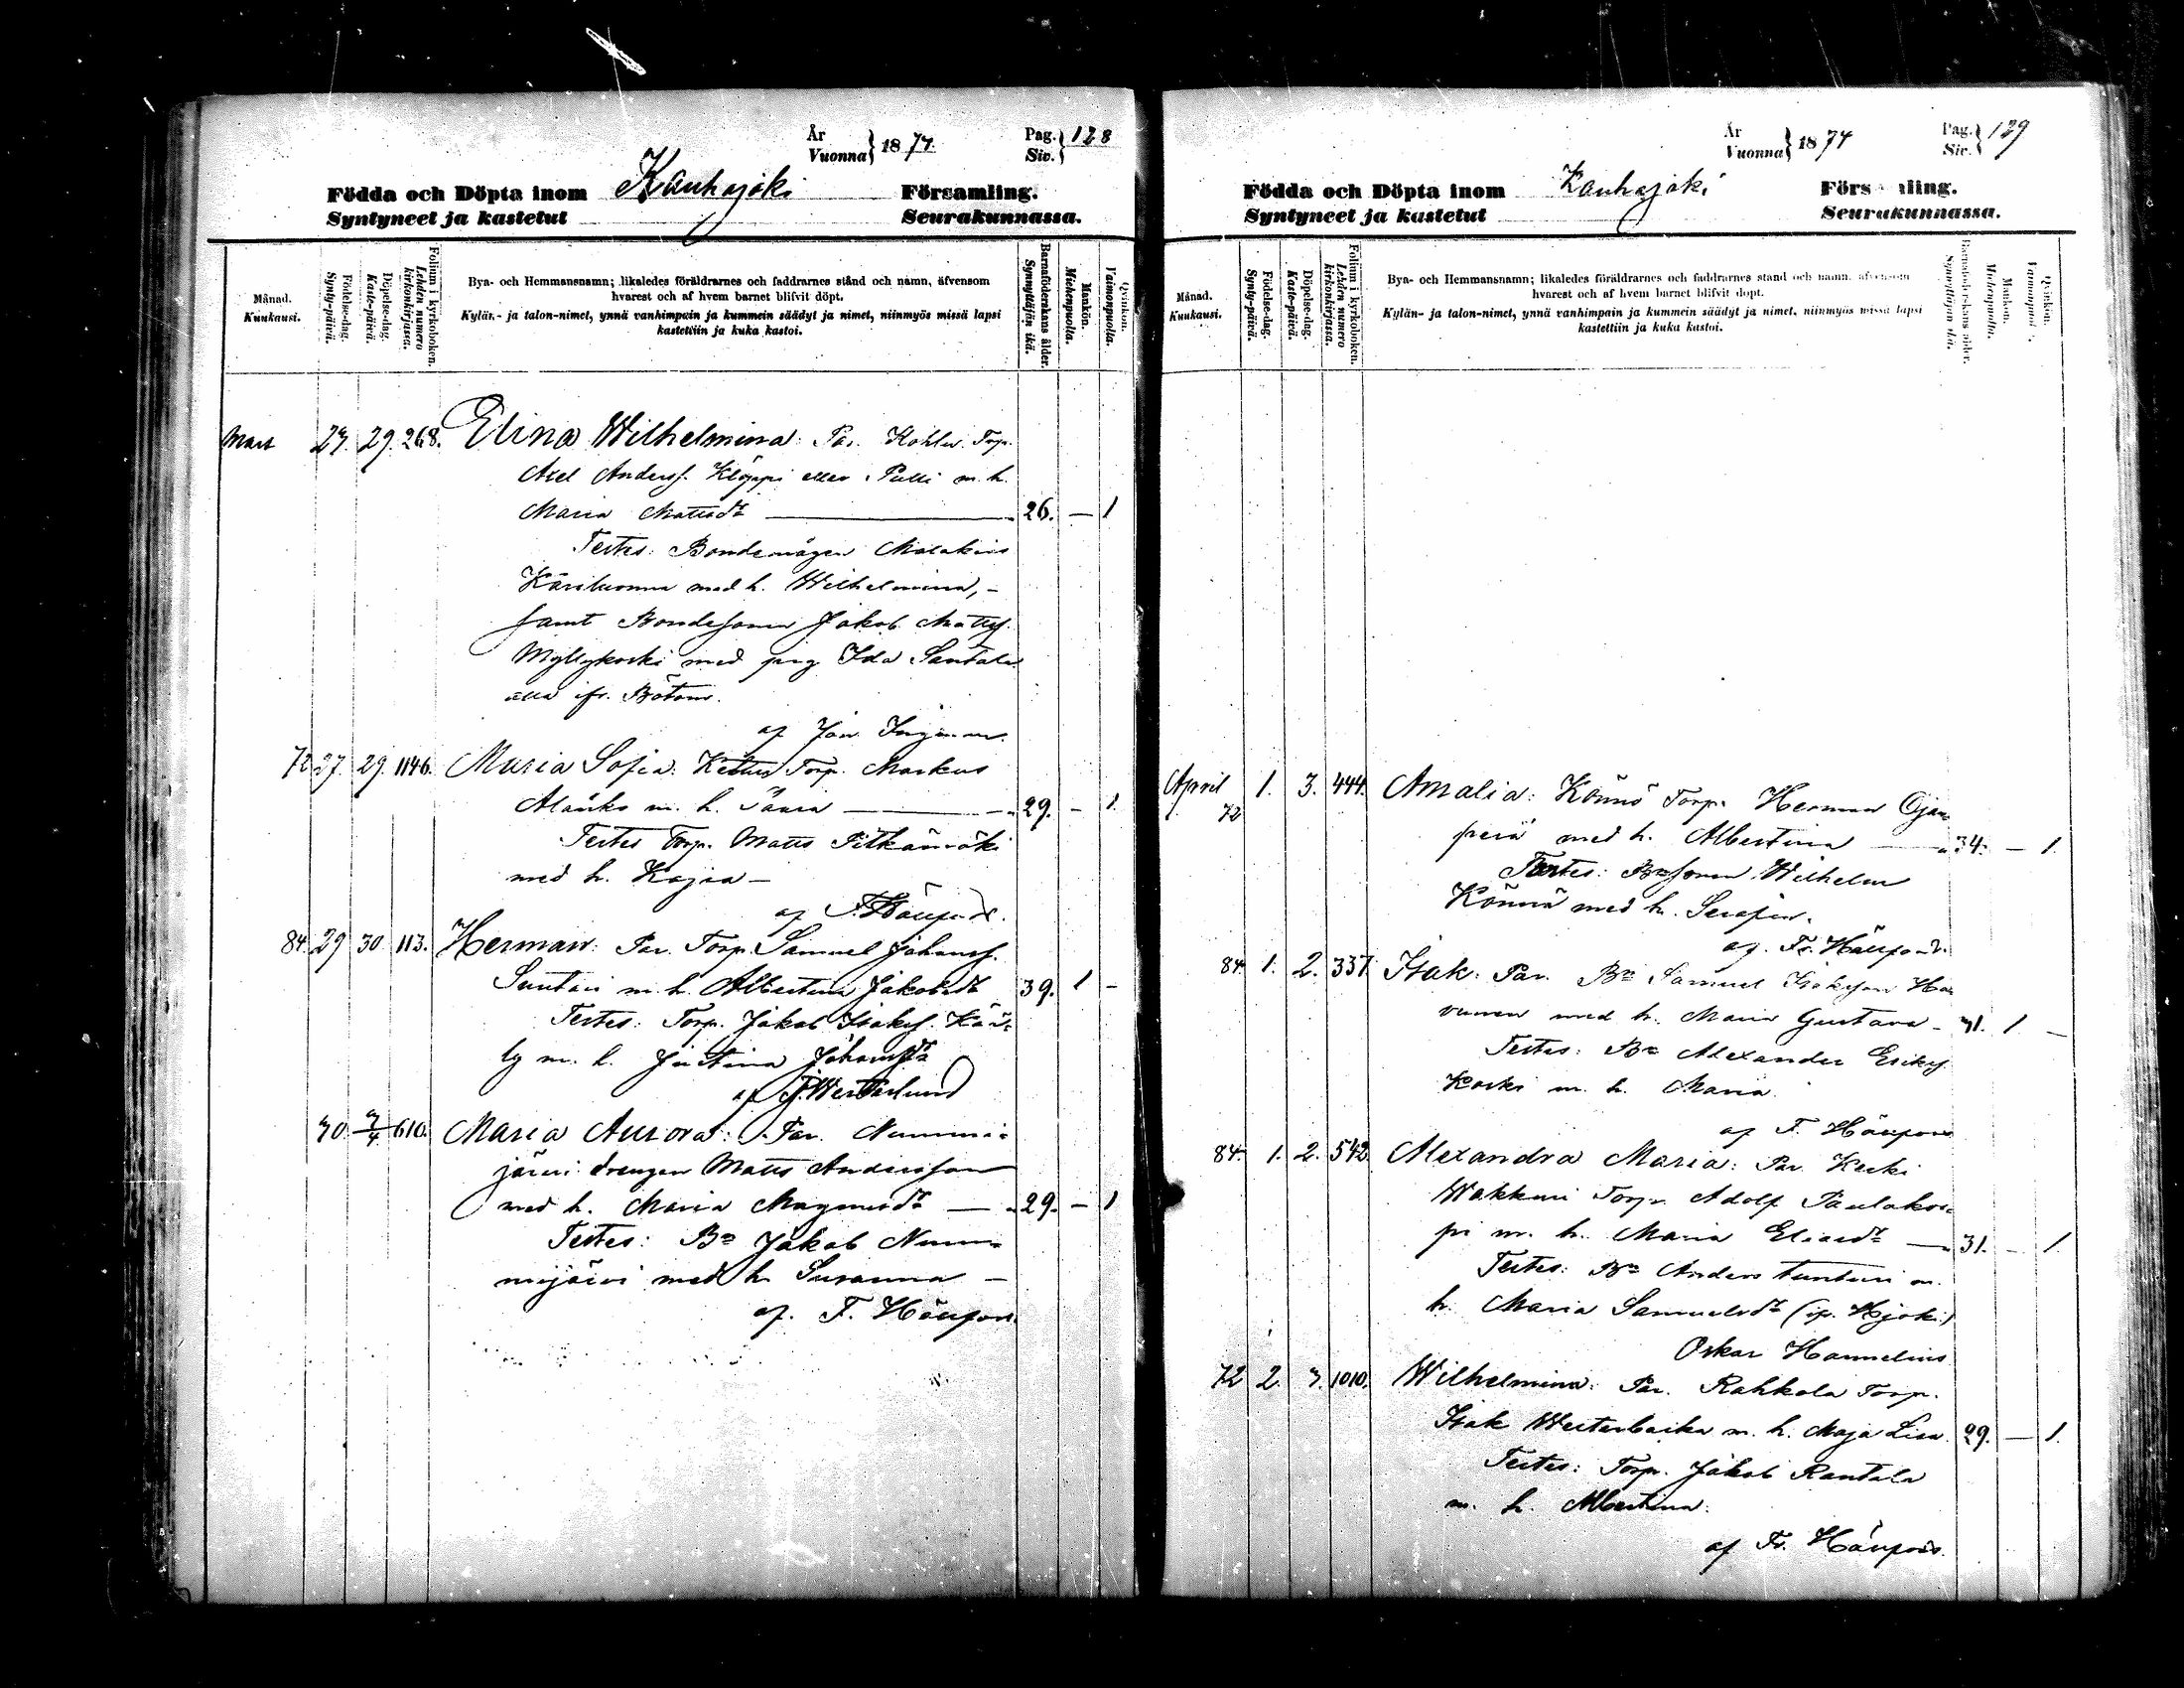 År
Vuonna } 1874. Pag. Siv. } 128
Födda och Döpta inom Kauhajoki Församling.
Syntyneet ja kastetut Seurakunnassa.
Månad. Kuukausi.
Födelse-dag. Synty-päivä.
Döpelse-dag. Kaste-päivä.
Folium i kyrkoboken. Lehden numero kirkonkirjassa.
Bya- och Hemmansnamn; likaledes föräldrarnes och faddrarnes stånd och namn, äfvensom
hvarest och af hvem barnet blifvit döpt.
Kylän- ja talon-nimet, ynnä vanhimpain ja kummein säädyt ja nimet, niinmyös missä lapsi
kastettiin ja kuka kastoi.
Barnaföderskans ålder. Synnyttäjän ikä.
Mankön. Miehenpuolia.
Qvinkön. Vaimonpuolia.
Mart 27. 29. 268. Elina Wilhelmina: Par. Torp.
Axel Anderss. Klöppi eller Pulli m. h.
Maria Mattsdr 26. — 1
Testes: Bondemågen Malakias
med h. Wilhelmina, –
samt Bondesonen Jakob Mattss.
Myllykoski med pig. Ida Santala
alla ifr. Bötom.
af
72 27. 29. 1146. Maria Sofia: Torp. Markus
Alanko m. h. 29. – 1.
Testes Torp. Matts Pitkämäki
med h. Kajsa –
af
84. 29 30 113. Herman: Par. Torp. Samuel Johanss.
Suntari m. h. Albertina Jakobsdr 39. 1 –
Testes: Torp. Jakob Isakss.
m. h. Justina Johansdr
af J. Westerlund
30. 3/4 610. Maria Aurora: Par. Nummi-
järvi drengen Matts Andersson
med h. Maria Magnusdr 29. – 1
Testes: Bn Jakob Num-
mijärvi med h. Susanna –
af. F.
År
Vuonna } 1874 Pag. Siv. } 129
Födda och Döpta inom Kauhajoki Församling.
Syntyneet ja kastetut Seurakunnassa.
Månad. Kuukausi.
Födelse-dag. Synty-päivä.
Döpelse-dag. Kaste-päivä.
Folium i kyrkoboken. Lehden numero kirkonkirjassa.
Bya- och Hemmansnamn; likaledes föräldrarnes och faddrarnes stånd och namn, äfvensom
hvarest och af hvem barnet blifvit döpt.
Kylän- ja talon-nimet, ynnä vanhimpain ja kummein säädyt ja nimet, niinmyös missä lapsi
kastettiin ja kuka kastoi.
Barnaföderskans ålder. Synnyttäjän ikä.
Mankön. Miehenpuolia.
Qvinkön. Vaimonpuolia.
April 72 1. 3. 444. Amalia: Könnö Torp. Herman Ojan-
perä med h. Albertina 34. – 1.
Testes: Bondesonen Wilhelm
Könnö med h. Serafina.
af. Fr.
84. 1. 2. 337. Isak: Par. Bn Samuel Isaksson
med h. Maria Gustava 31. 1 –
Testes: Bn Alexander Erikss.
Koski m. h. Maria.
af F.
84. 1. 2. 542. Alexandra Maria: Par. Keski
Wakkuri Torp. Adolf Paulakor-
pi m. h. Maria Eliasdr 31. – 1.
Testes: Bn Anders Tunturi m.
h. Maria Samuelsdr
Oskar Hannelius
72 2. 3. 1010. Wilhelmina: Par. Rahkola Torp.
Isak Westerbacka m. h. Maja Lisa. 29. — 1.
Testes: Torp. Jakob Rantala
m. h. Albertina.
af Fr.